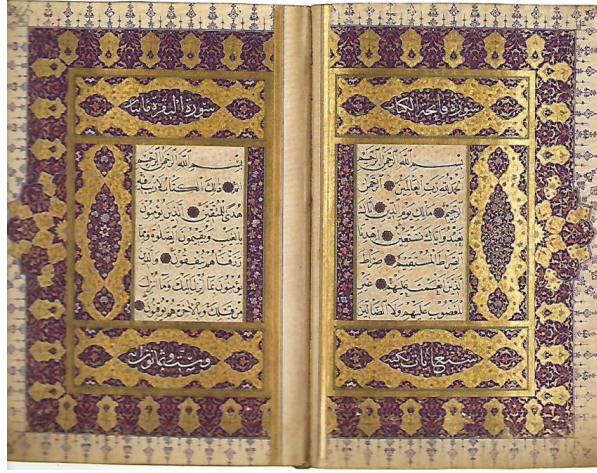 سورة فاتحة الكتاب
بسم الله الرحمن الرحيم
الحمد لله رب العالمين الرحمن
الرحيم مالك يوم الدين اياك
نعبد واياك نستعين اهدنا
الصراط المستقيم صراط
الذين انعمت عليهم غير
المغضوب عليهم ولا الضالين
سبع ايات مكية
سورة البقرة مائتا
بسم الله الرحمن الرحيم
الم ذلك الكتاب لا ريب فيه
هدى للمتقين الذين يؤمنون
بالغيب ويقيمون الصلوة ومما
رزقناهم ينفقون والذين
يؤمنون بما انزل اليك وما انزل
من قبلك وبالاخرة هم يوقنون
وست وثمانون